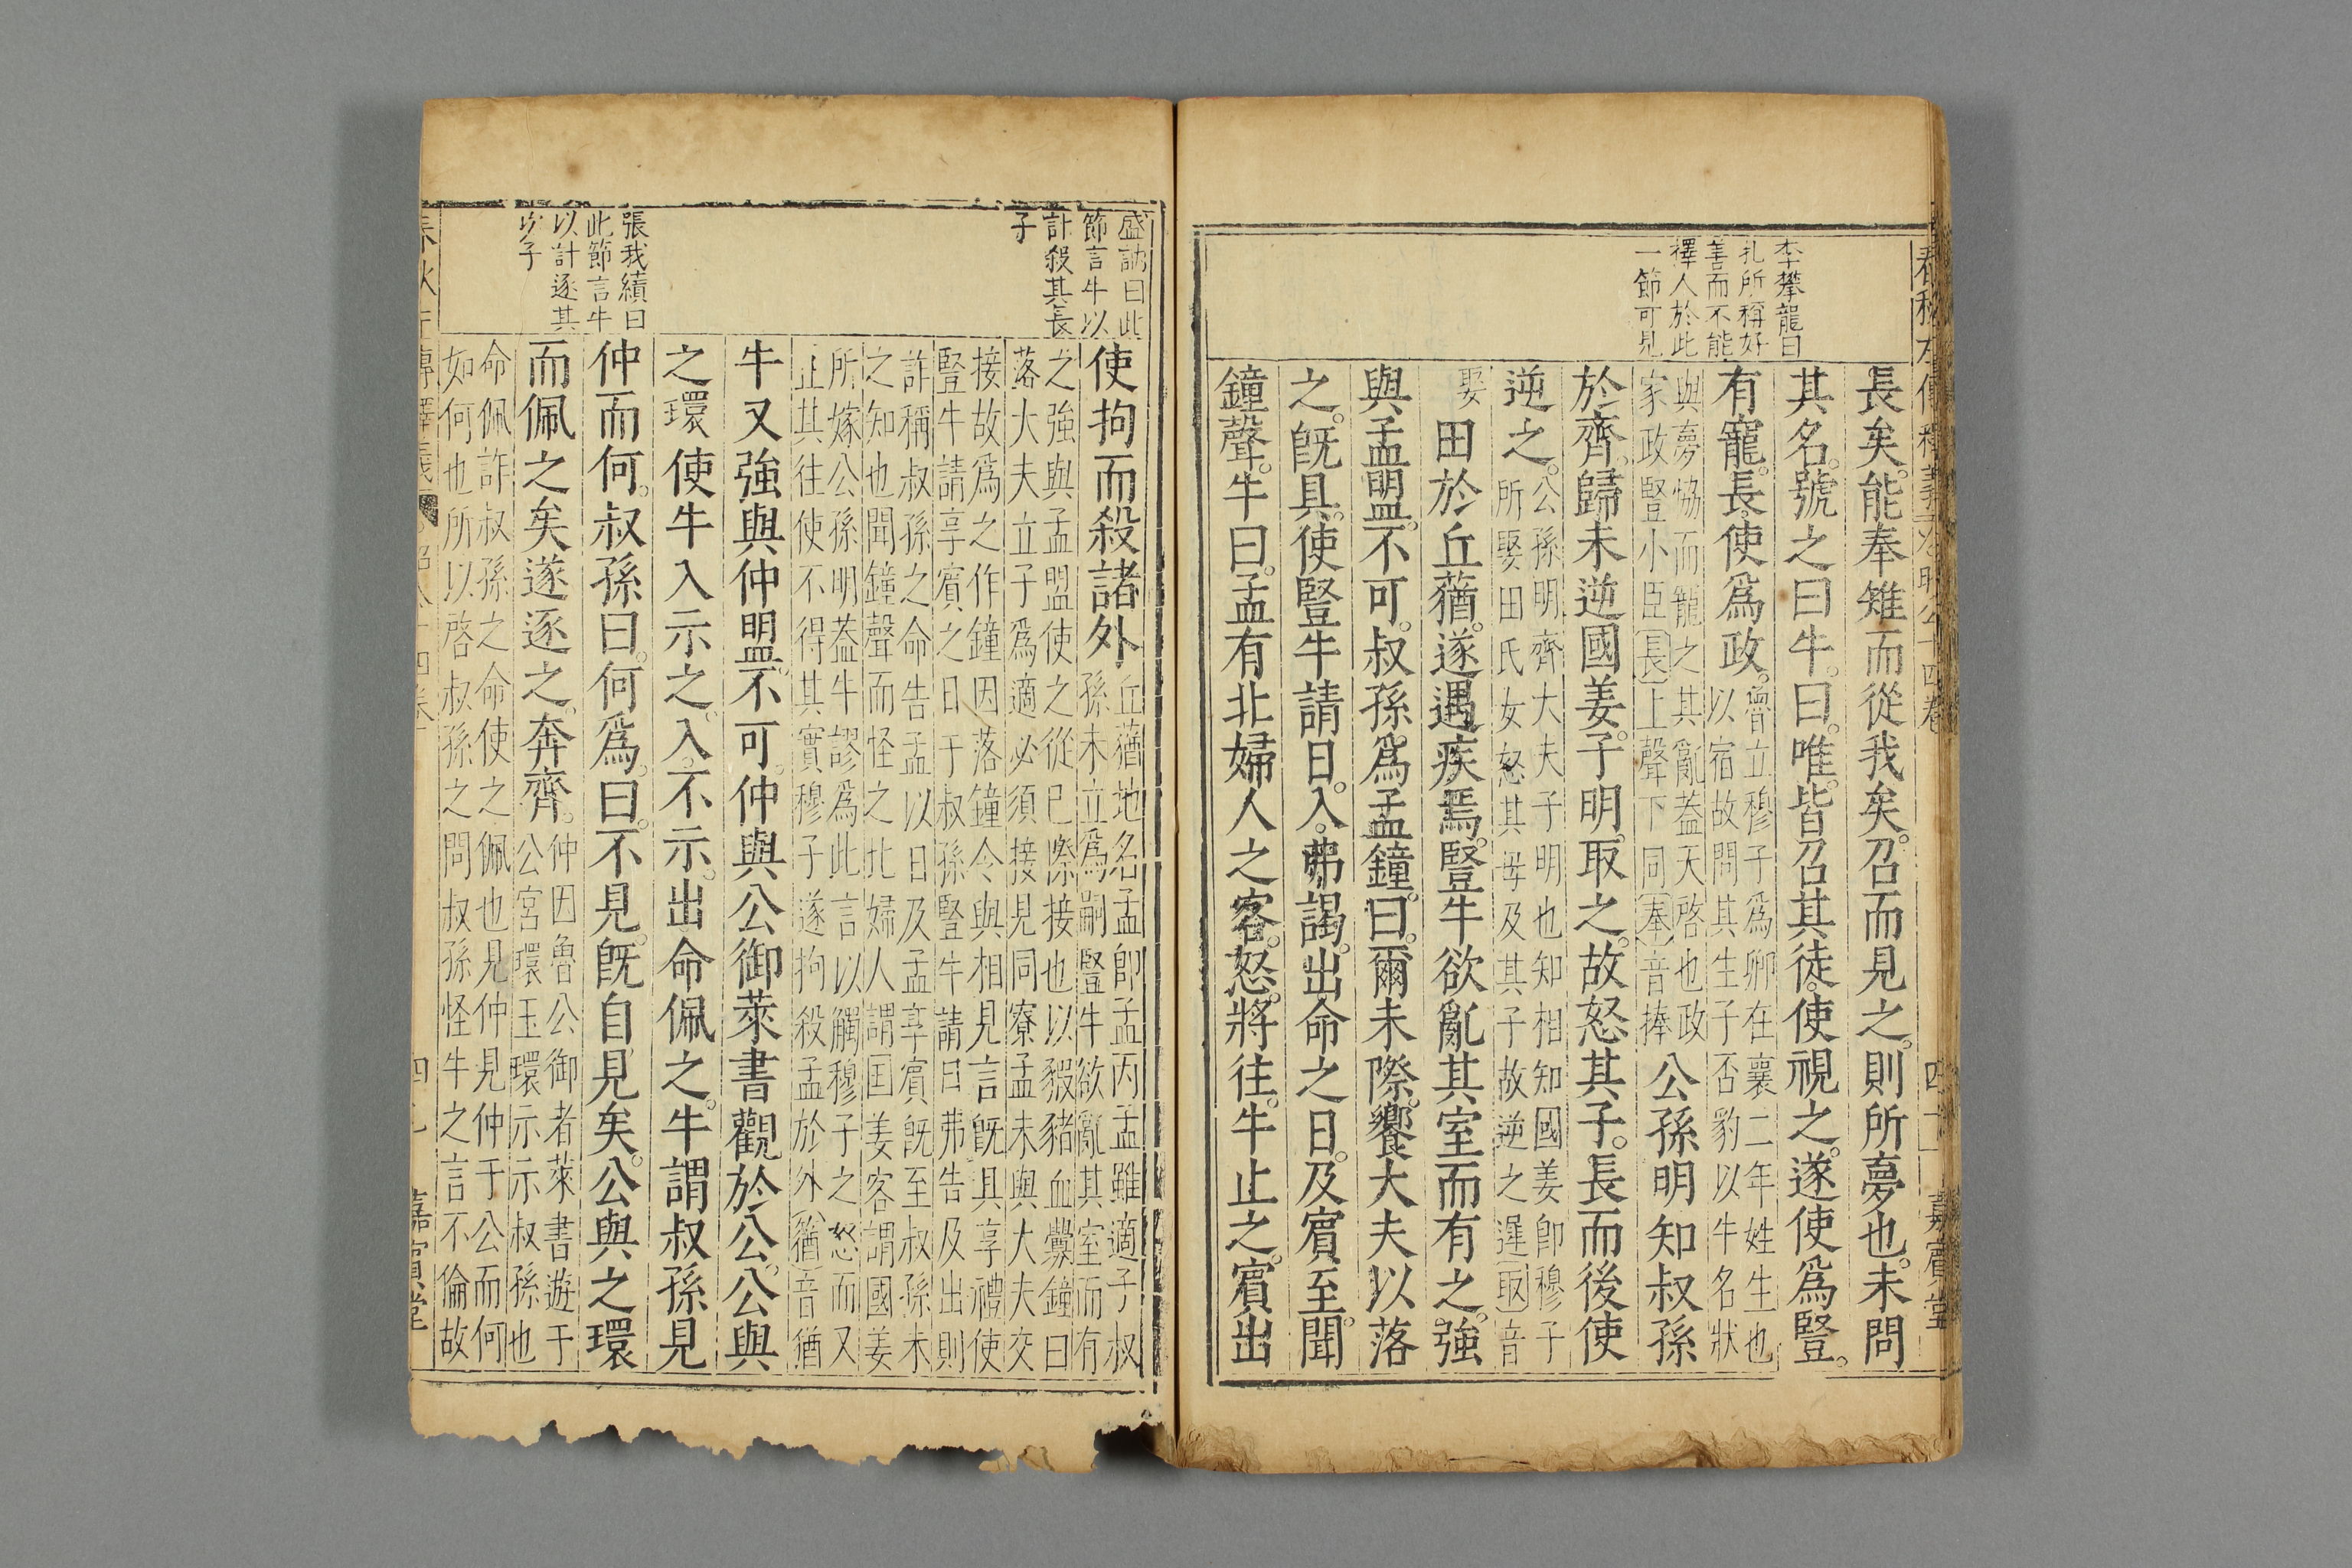 春秋左傳釋義 昭公十四卷 四十 嘉賓堂
李攀龍曰
札所稱好
善而不能
擇人於此
一節可見
長矣能奉雉而從我矣。召而見之。則所夢也。未問
其名。號之曰牛。曰。唯。皆召其徒。使視之。遂使爲豎。
有寵。長。使爲政。
魯立穆子爲卿在襄二年姓生也
以宿故問其生子否豹以牛名狀
與夢恊而寵之其亂蓋天啓也政
家政豎小臣長上聲下同奉音捧
公孫明知叔孫
於齊。歸未逆國姜。子明。取之。故怒其子。長而後使
逆之。
公孫明齊大夫子明也知相知國姜卽穆子
所娶田氏女怒其母及其子故逆之遲取音
娶
田於丘蕕。遂遇疾焉。豎牛欲亂其室而有之。強
與孟盟。不可。叔孫。爲孟鐘。曰。爾未際。饗大夫以落
之。旣具。使豎牛請日。入。弗謁。出命之日。及賓至。聞
鐘聲。牛曰。孟有北婦人之客。怒。將往。牛止之。賓出
盛訥曰此
節言牛以
計殺其長
子
張我績曰
此節言牛
以計逐其
少子
使拘而殺諸外
丘蕕地名孟卽孟丙孟雖適子叔
孫未立爲嗣豎牛欲亂其室而有
之強與孟盟使之從巳際接也以豭豬血釁鐘曰
落大夫立子爲適必須接見同寮孟未與大夫交
接故爲之作鐘因落鐘令與相見言旣具享禮使
豎牛請享賓之日于叔孫豎牛請日弗告及出則
詐稱叔孫之命告孟以日及孟享賓旣至叔孫未
之知也聞鐘聲而怪之北婦人謂囯姜客謂國姜
所嫁公孫明葢牛謬爲此言以觸穆子之怒而又
止其往使不得其實穆子遂拘殺孟於外蕕音猶
牛又強與仲盟。不可。仲與公御萊書觀於公。公與
之環。使牛入示之。入。不示。出命佩之。牛謂叔孫見
仲而何。叔孫曰。何爲。曰。不見。旣自見矣。公與之環
而佩之矣遂逐之。奔齊。
仲因魯公御者萊書遊于
公宮環玉環示示叔孫也
命佩詐叔孫之命使之佩也見仲見仲于公而何
如何也所以啓叔孫之問叔孫怪牛之言不倫故